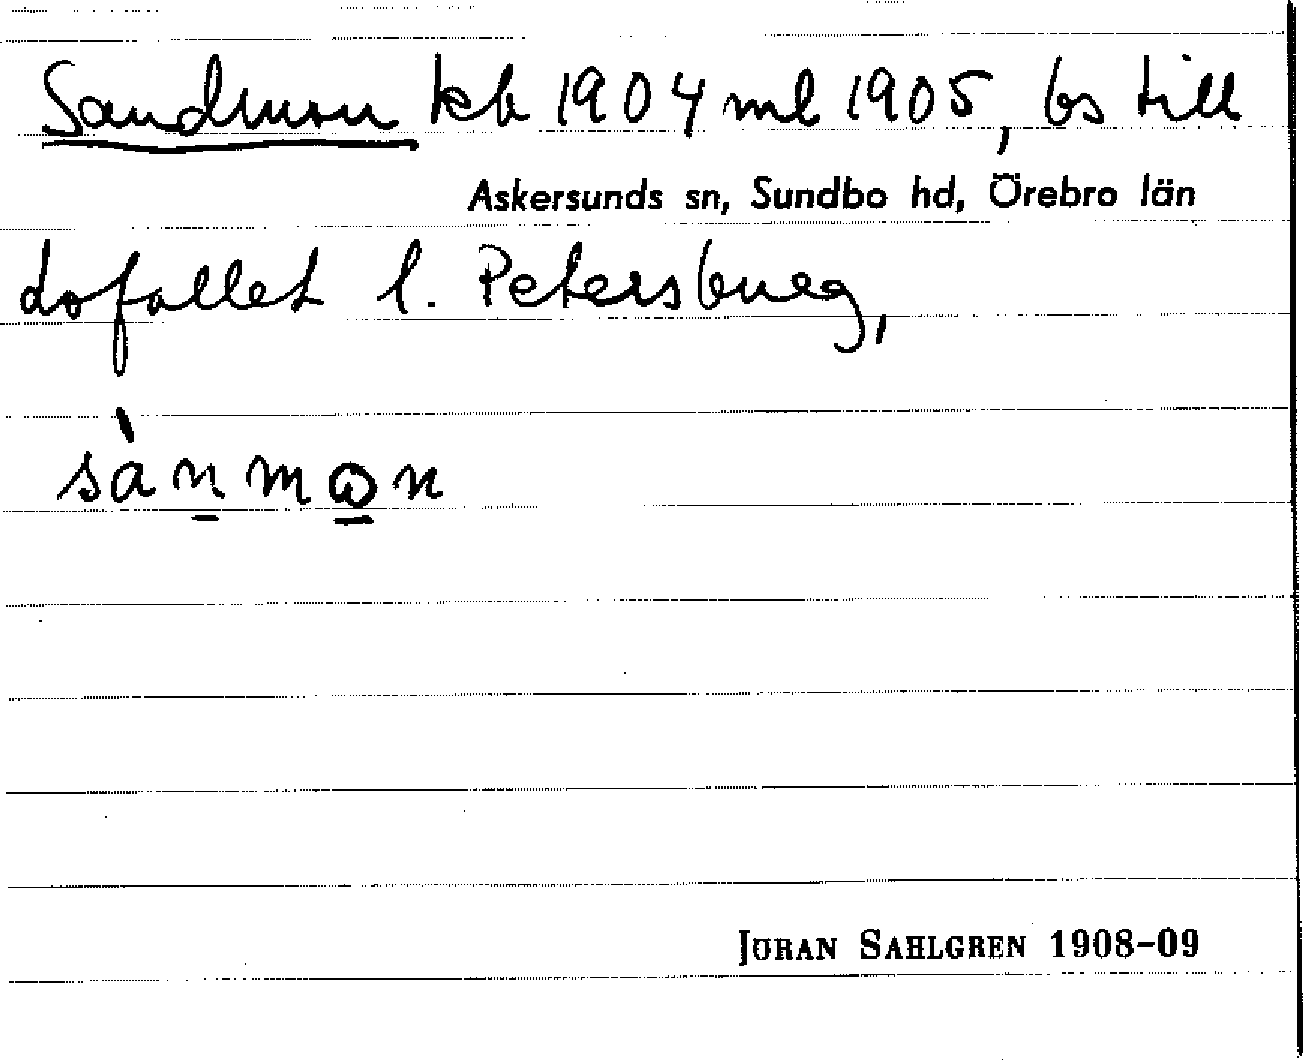 Sandmon kb 1904 ml 1905, bs till
Askersunds sn, Sundbo hd, Örebro län
Lofallet l. Petersburg,
sànmωn
JÖRAN SAHLGREN 1908-09